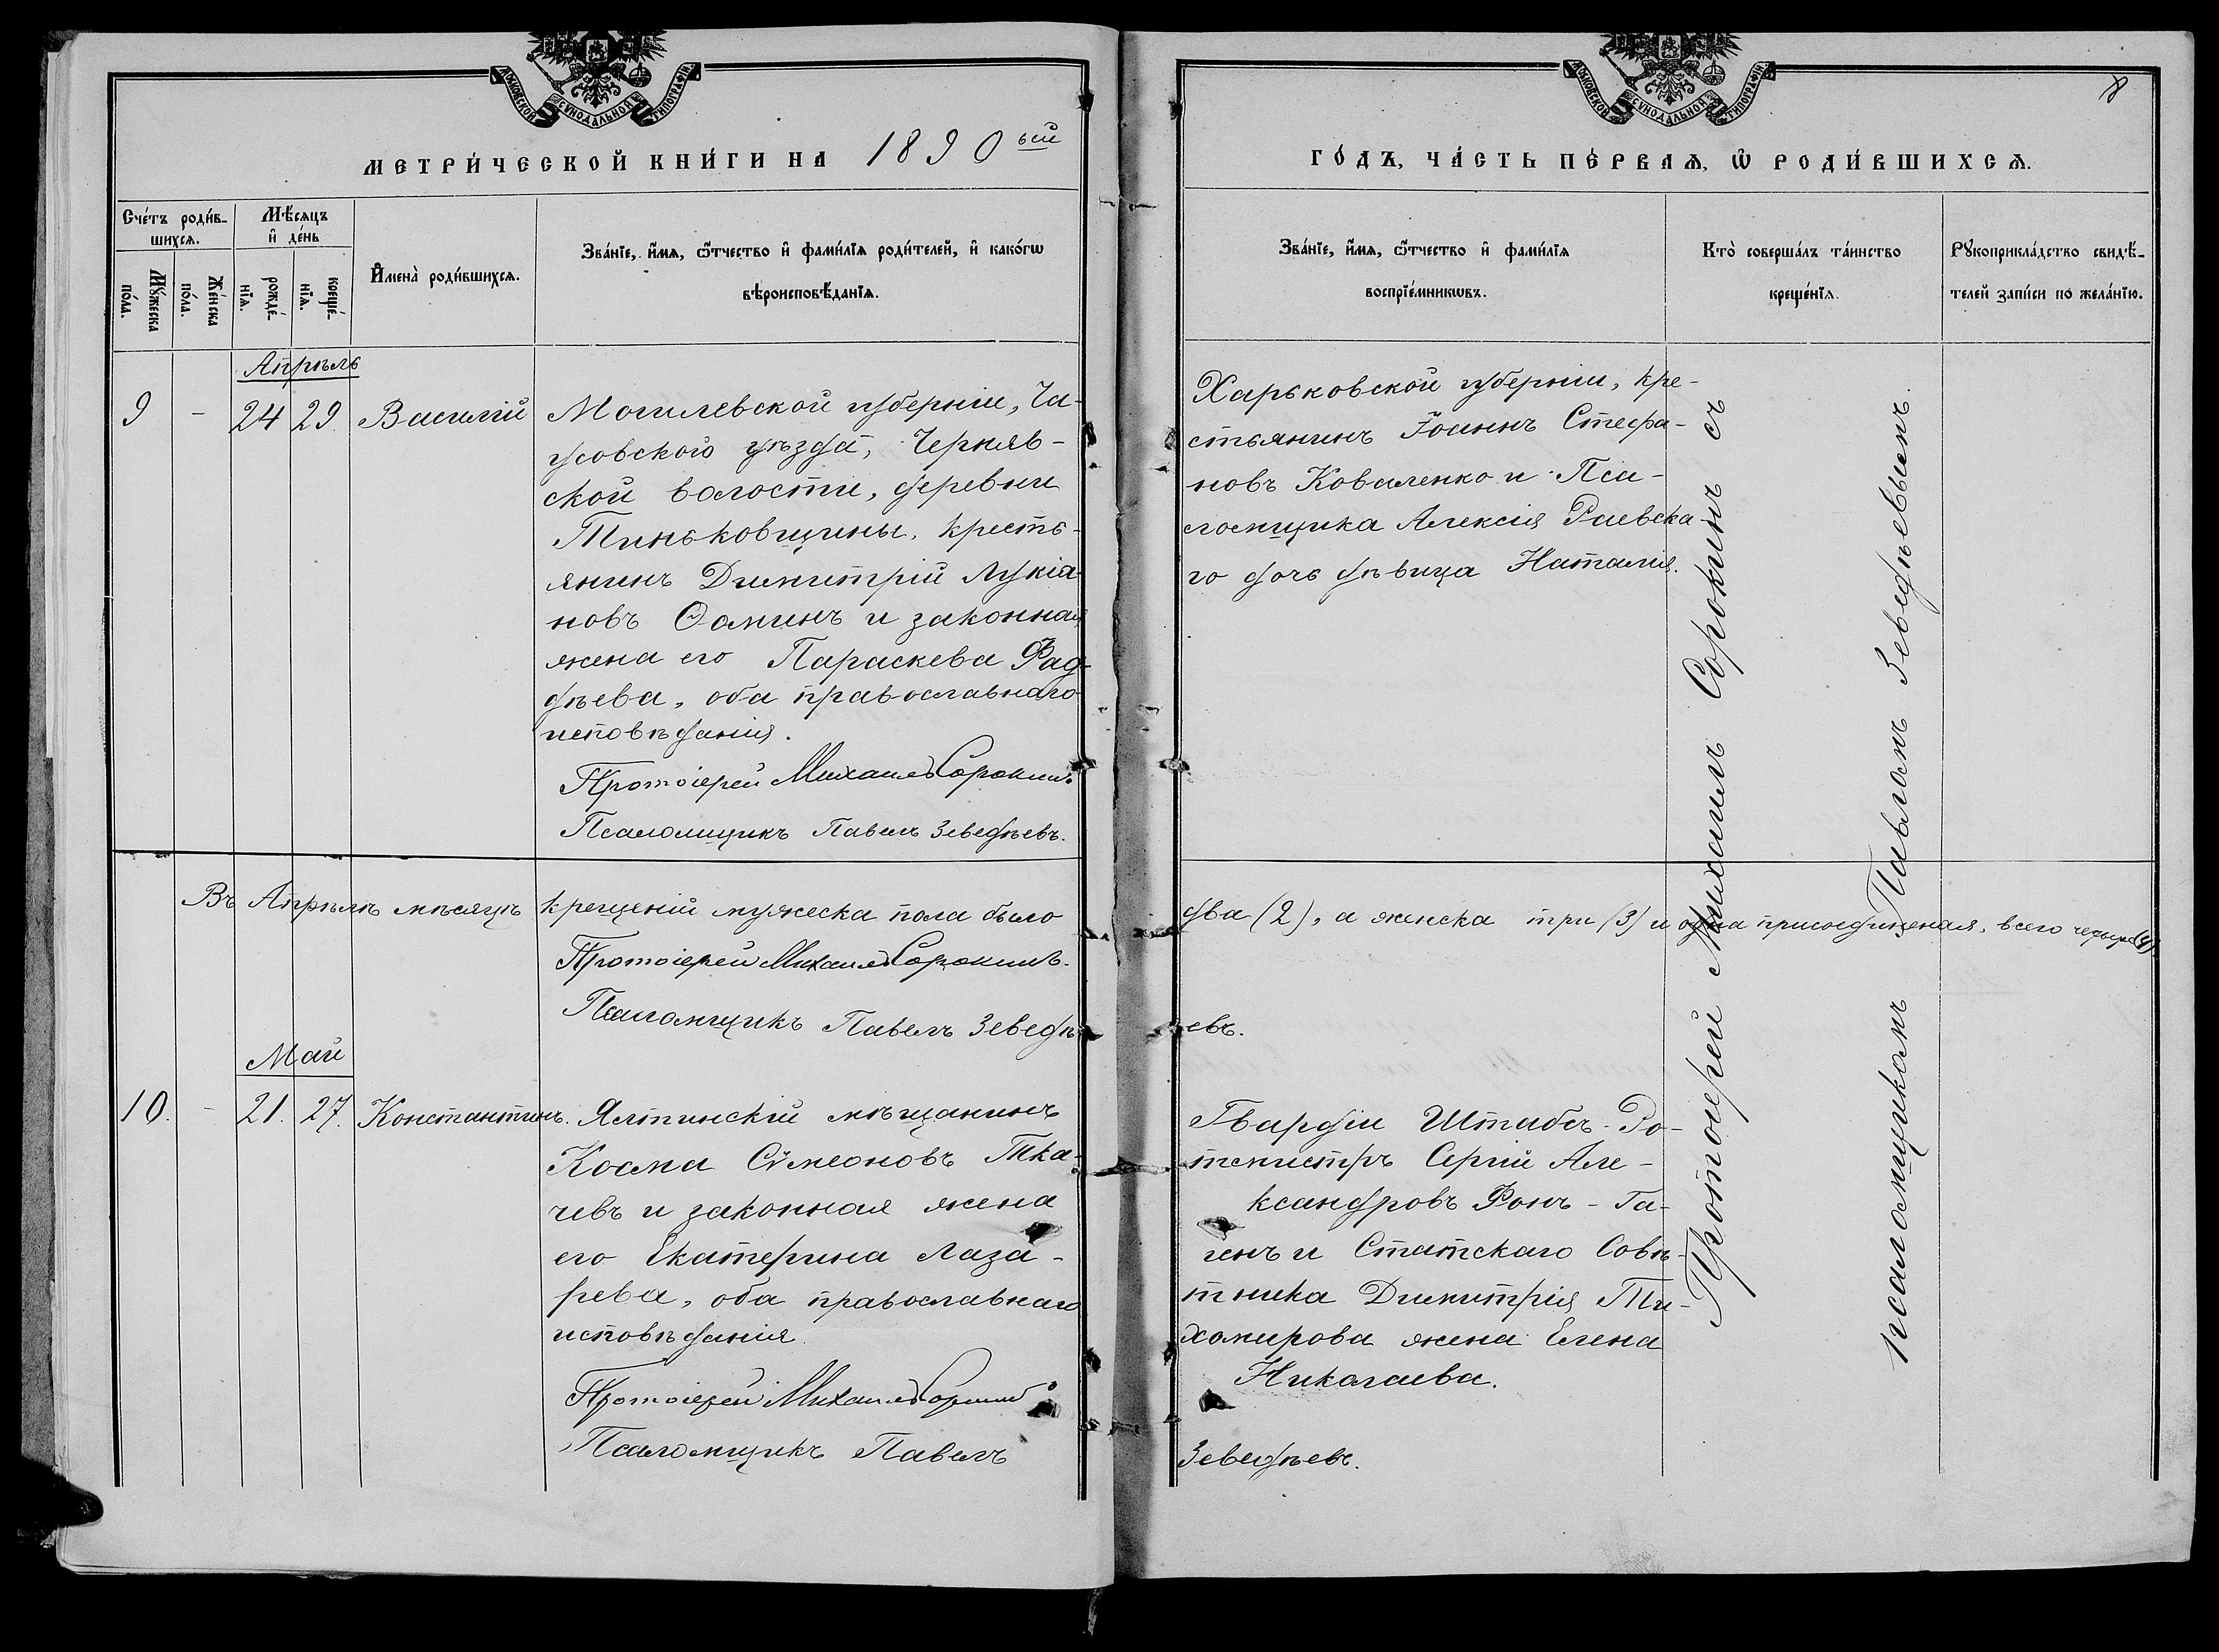 МОСКОВСКОЙ СѴНОДАЛЬНОЙ ТИПОГРАФІИ
МЕТРИ́ЧЕСКОЙ КНИ́ГИ НА 1890 ый
Сче́тъ роди́в-
шихсѧ.
Мѣ́сяцъ
и҆ де́нь
Мꙋ́жеска
по́ла.
Же́нска
по́ла.
рожде́-
нїѧ.
креще́-
нїѧ.
И҆мена̀ роди́вшихсѧ.
Зва́нїе, и҆́мѧ, ѻ҆́тчество и҆ фами́лїѧ роди́телей, и҆ како́гѡ
вѣроисповѣ́данїѧ.
Апрѣль
9 - 24 29 Василій
Могилевской губерніи, Ча-
усовского уѣзда, Черняв-
ской волости, деревни
Тиньковщины, кресть-
янинъ Димитрій Лукіа-
новъ Ѳоминъ и законная
жена его Параскева Фад-
дѣева, оба православнаго
исповѣданія.
Протоіерей Михаилъ Сорокинъ.
Псаломщикъ Павелъ Зеведѣевъ.
Въ Апрѣлѣ мѣсяцѣ крещеній мужеска пола было
Протоіерей Михаилъ Сорокинъ.
Псаломщикъ Павелъ Зеведѣ-
Май
10. - 21. 27. Константинъ.
Ялтинскій мѣщанинъ
Косма Сѵмеоновъ Тка-
чевъ и законная жена
его Екатерина Лаза-
рева, оба православнаго
исповѣданія.
Протоіерей Михаилъ Сорокинъ
Псаломщикъ Павелъ
МОСКОВСКОЙ СѴНОДАЛЬНОЙ ТИПОГРАФІИ
8
ГО́ДЪ, ЧА́СТЬ ПЕ́РВАѦ, Ѽ РОДИ́ВШИХСѦ.
Зва́нїе, и҆́мѧ, ѻ҆́тчество и҆ фами́лїѧ
воспрїе́мникѡвъ.
Кто̀ соверша́лъ та́инство
креще́нїѧ.
Рꙋкоприкла́дство свидѣ́-
телей за́писи по жела́нїю.
Харьковской губерніи, кре-
стьянинъ Іоаннъ Стефа-
новъ Коваленко и Пса-
ломщика Алексія Раевска-
го дочь дѣвица Наталія.
два (2), а женска три (3) и одна присоединеная, всего четыре (4)
евъ.
Гвардіи Штабъ-Ро-
тмистръ Сергій Але-
ксандровъ Фонъ-Га-
генъ и Статскаго Совѣ-
тника Димитрія Ти-
хомирова жена Елена
Николаева.
Зеведѣевъ.
Протоіерей Михаилъ Сорокинъ съ
псаломщикомъ Павломъ Зеведѣевымъ.